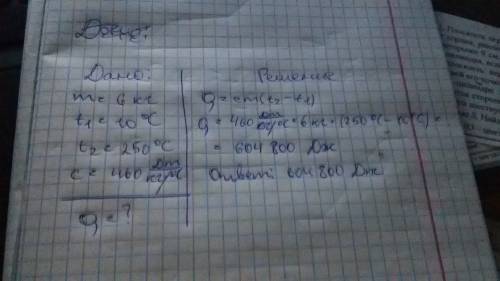 Дано:
Дано:
m = 6 кг
t₁ = 10 °C
t₂ = 250 °C
c = 460 Дж/кг·°C
Q = ?
Решение
Q = cm(t₂ - t₁)
Q = 460 Дж/кг·°C · 6 кг · (250 °C - 10 °C) =
= 604 800 Дж
Ответ: 604 800 Дж